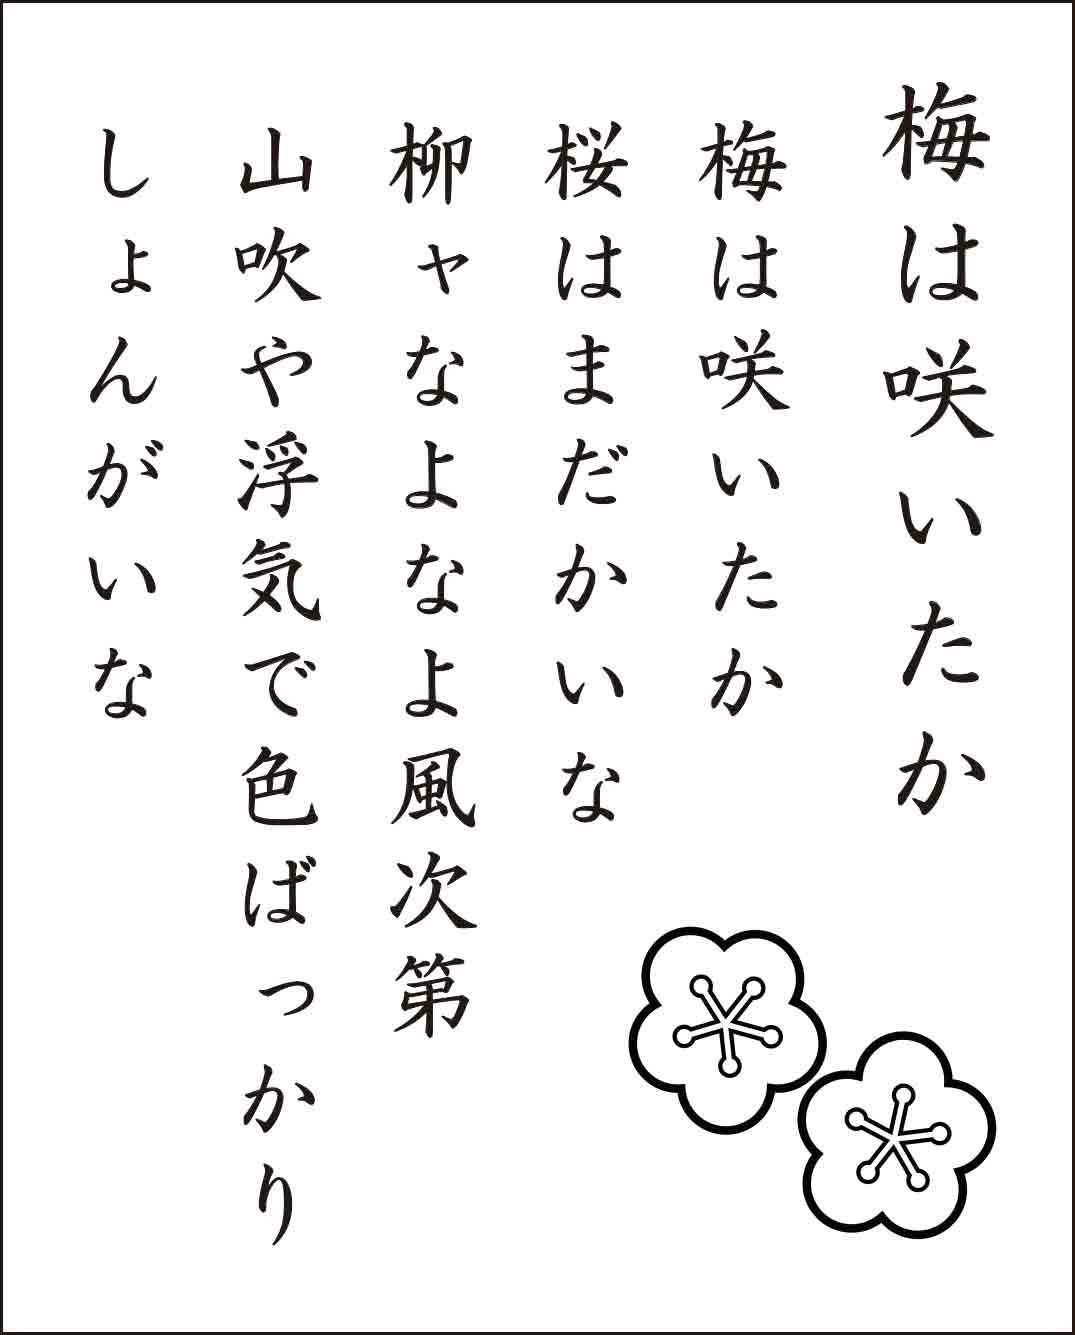 梅は咲いたか
梅は咲いたか
桜はまだかいな
柳ャなよなよ風次第
山吹や浮気で色ばっかり
しょんがいな